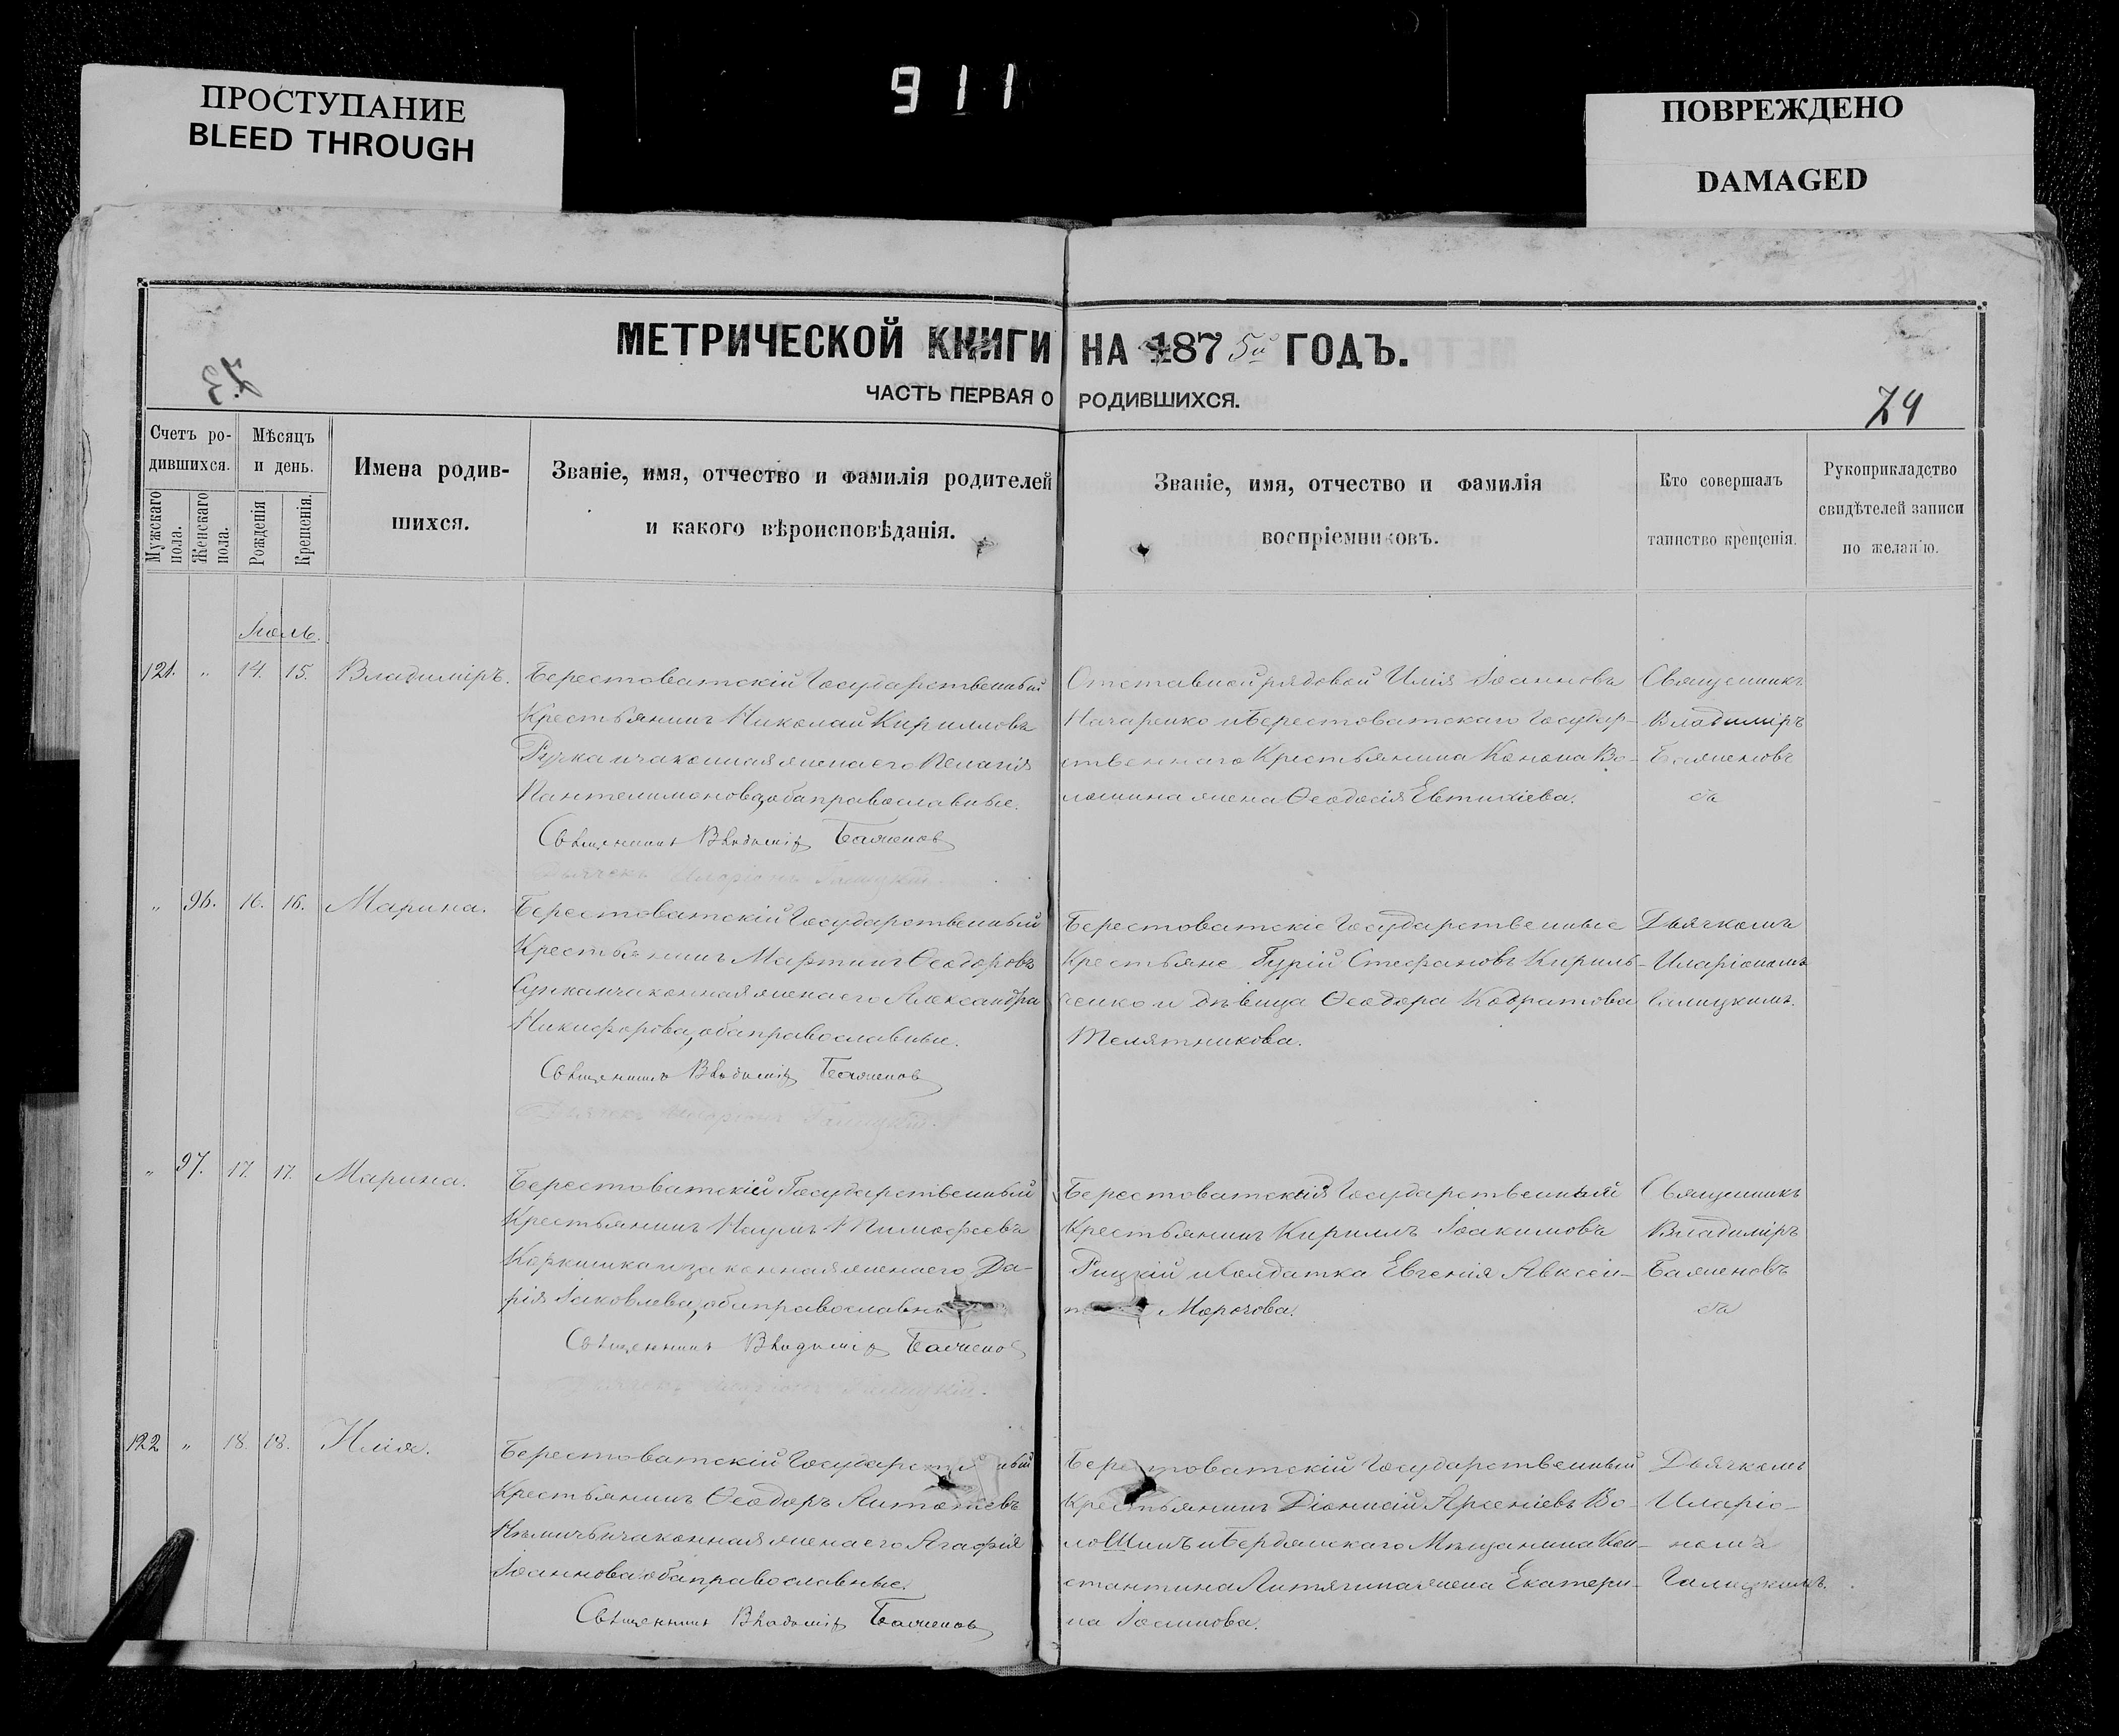 911
ПРОСТУПАНИЕ
BLEED THROUGH
ПОВРЕЖДЕНО
DAMAGED
МЕТРИЧЕСКОЙ КНИГИ НА 1875й ГОДЪ.
ЧАСТЬ ПЕРВАЯ О РОДИВШИХСЯ.
74
Счетъ ро-
дившихся.
Мужскаго пола.
Женскаго пола.
Мѣсяцъ
и день.
Рожденія
Крещенія.
Имена родив-
шихся.
Званіе, имя, отчество и фамилія родителей
и какого вѣроисповѣданія.
Званіе, имя, отчество и фамилія
воспріемниковъ.
Кто совершалъ
таинство крещенія.
Рукоприкладство
свидѣтелей записи
по желанію.
Іюль.
121. " 14. 15. Владиміръ.
Берестоватскій Государственный
Крестьянинъ Николай Кирилловъ
Ручка и законная жена его Пелагія
Пантелимонова, оба православные.
Священникъ Владиміръ Баженов
Отставной рядовой Илія Іоанновъ
Назаренко и Берестоватскаго Государ-
ственнаго Крестьянина Конона Во-
лошина жена Ѳеодосія Евтихіева.
Священникъ
Владиміръ
Баженовъ
" 96. 16. 16. Марина.
Берестоватскій Государственный
Крестьянинъ Мартинъ Ѳеодоровъ
и законная жена его Александра
Никифорова, оба православные.
Священникъ Владиміръ Баженов
Берестоватскіе Государственные
Крестьяне Гурій Стефановъ Кириль-
ченко и дѣвица Ѳеодора Кодратова
Телятникова.
Дьячкомъ
Иларіономъ
Галицкимъ.
" 97. 17. 17. Марина.
Берестоватскій Государственный
Крестьянинъ Наумъ Тимофеевъ
и законная жена его Да-
рія Іаковлева, оба православн
Священникъ Владиміръ Баженов
Берестоватскій Государственный
Крестьянинъ Кириллъ Іоакимовъ
Рицкій и Солдатка Евгенія Авксен-
Морозова.
Священникъ
Владиміръ
Баженовъ
122 " 18. 18. Илія.
Берестоватскій Государст ный
Крестьянинъ Ѳеодоръ
и законная жена его Агафія
Іоаннова оба православные.
Священникъ Владиміръ Баженов
Берестоватскій Государственный
Крестьянинъ Діонисій Арсеніевъ Во-
лоШинъ и Бердянскаго Мѣщанина Кон-
стантина жена Екатери-
на Іоаннова.
Дьячкомъ
Иларіо-
номъ
Галицкимъ.